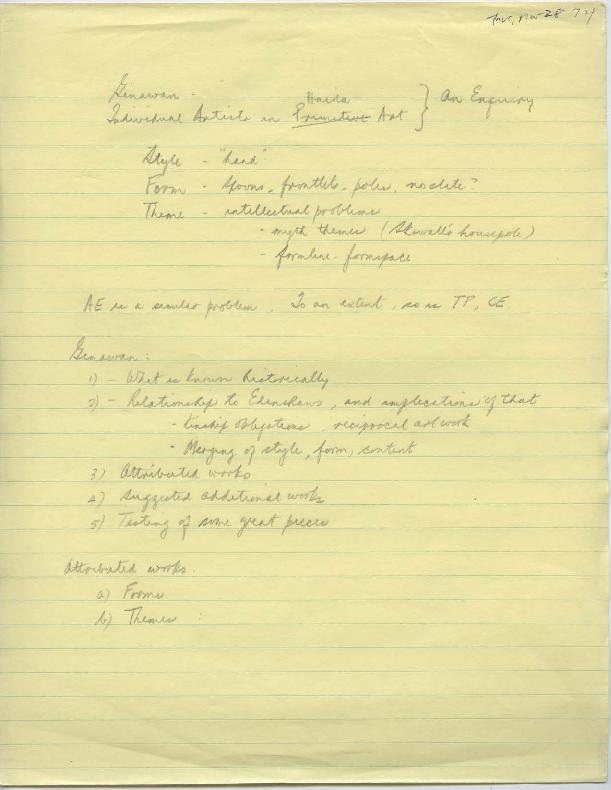 Thur, Nov 28 74
Ginawan -
Haida
Individual Artists in Primitive Art } An Enquiry
Style - "hand"
Form - Spoons, frontlets, poles, no slate?
Theme - intellectual problems
- myth themes (Skowall's housepole)
- formline - formspace
AE is a similar problem. To an extent, so is TP, CE
Ginawan:
1) - What is known historically
2) - Relationship to Edenshaws, and implications of that
- kinship obligations, reciprocal artwork
- Merging of style, form, content
3) Attributed works
4) Suggested additional works
5) Testing of some great pieces
Attributed works.
a) Forms
b) Themes :